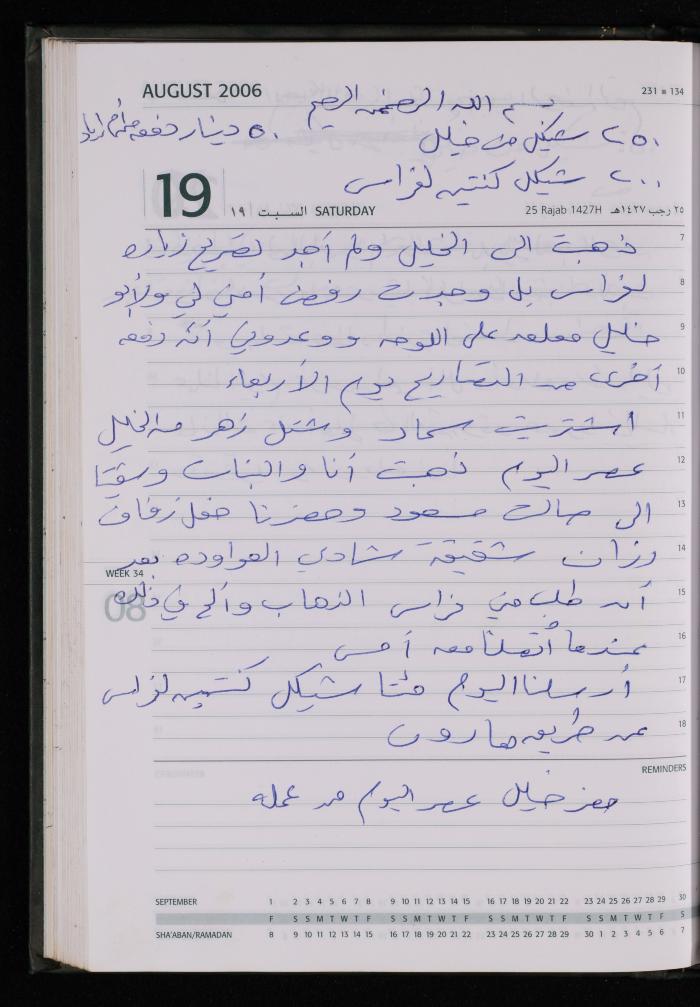 AUGUST 2006
231 ■ 134
بسم الله الرحمن الرحيم
٢٥٠ شيكل من خليل ٥٠ دينار دفعة
٢٠٠ شيكل كنتين لفراس
19
السبت ١٩ SATURDAY
25 Rajab 1427H ٢٥ رجب ١٤٢٧هـ
7 ذهبت الى الخليل ولم أجد تصريح زياره
8 لفراس بل وجدت رفض أمني لي ولأبو
9 خليل معلقه على اللوحه ووعدوني أنه دفعه
10 أخرى من التصاريح يوم الأربعاء
11 اشتريت سماد وشتل زهر من الخليل
12 عصر اليوم ذهبت أنا والبنات
13 الى صالة مسعود وحضرنا حفل زفاف
14 رزان شقيقة شادي العواوده بعد
WEEK 34
15 أن طلب مني فراس الذهاب وألح في ذلك
16 عندما اتصلنا معه أمس
17 أرسلنا اليوم مئتا شيكل كنتين لفراس
18 عن طريق هارون
REMINDERS
حضر خليل عصر اليوم من عمله
SEPTEMBER 1 2 3 4 5 6 7 8 9 10 11 12 13 14 15 16 17 18 19 20 21 22 23 24 25 26 27 28 29 30
F S S M T W T F S S M T W T F S S M T W T F S S M T W T F S
SHA'ABAN/RAMADAN 8 9 10 11 12 13 14 15 16 17 18 19 20 21 22 23 24 25 26 27 28 29 30 1 2 3 4 5 6 7